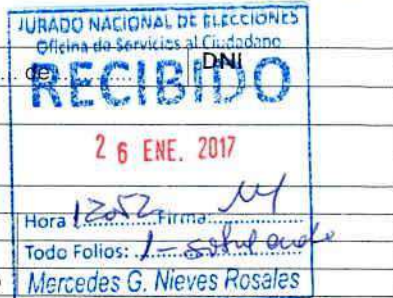 JURADO NACIONAL DE ELECCIONES
Oficina de Servicios al Ciudadano
de DNI
RECIBIDO
26 ENE. 2017
Hora 12:52 Firma:
Todo Folios: 1-
Mercedes G. Nieves Rosales